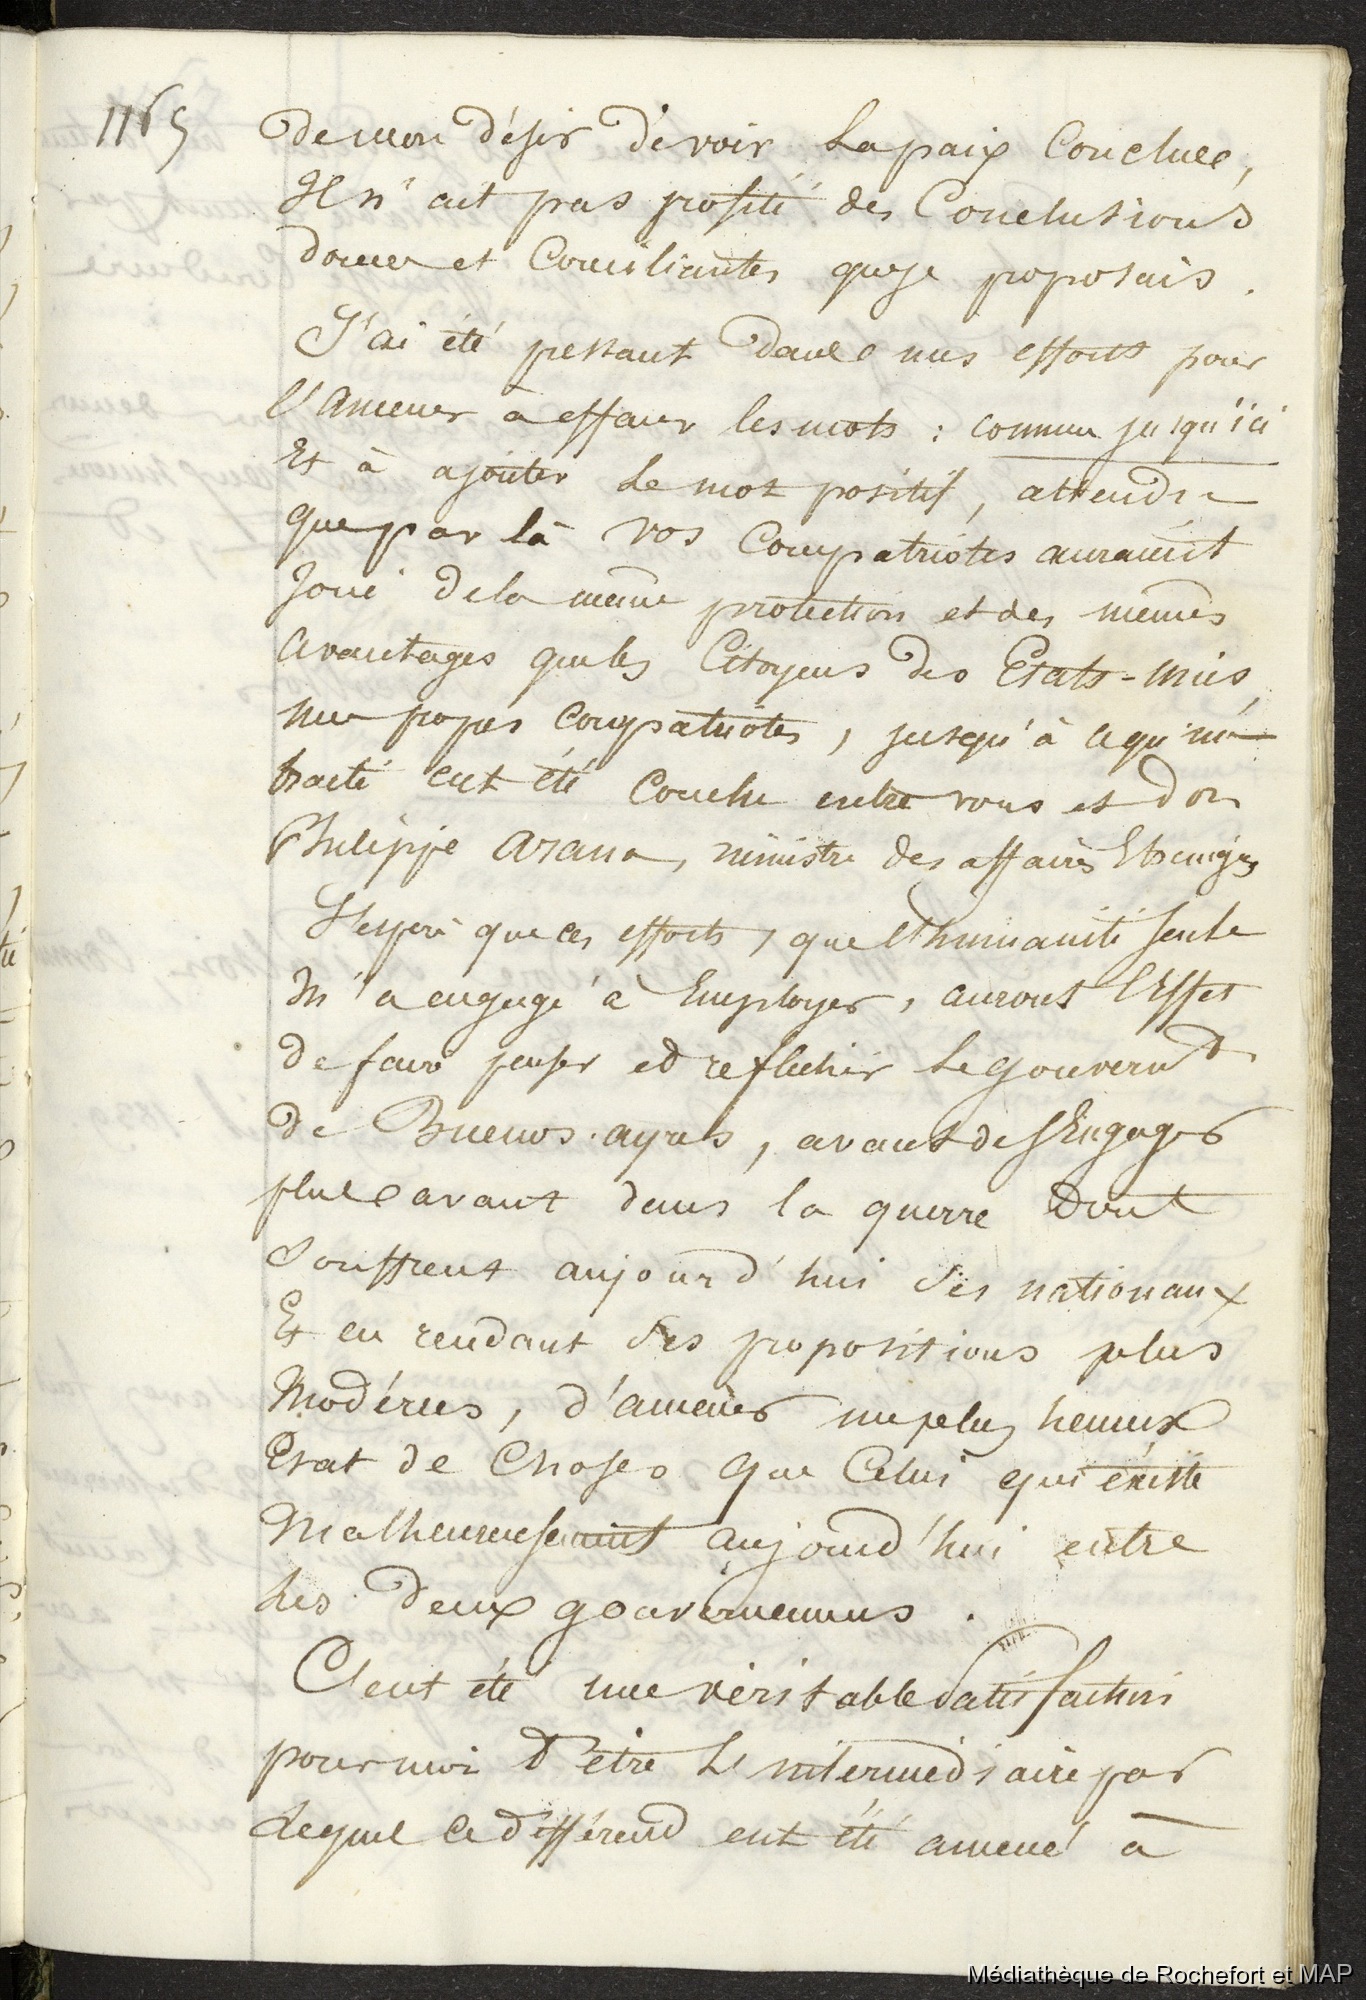 1165
De mon désir de voir la paix Conclue,
Il n'ait pas profité des Conclusions
douces et Conciliantes que je proposais.
J'ai été pressant dans mes efforts pour
l'amener à effacer les mots : comme jusqu'ici
Et à ajouter le mot positif, attendu
que par là vos Compatriotes auraient
Joui de la même protection et des mêmes
avantages que les Citoyens des Etats-unis,
mes propres compatriotes, jusqu'à ce qu'un
traité eut été Conclu entre vous et don
Philippe Arana, ministre des affaires Etrangères
J'espère que ces efforts, que l'humanité seule
m'a engagé à Employer, auront l'Effet
de faire penser et réfléchir le gouvern.t
de Buenos-ayres, avant de s'Engager
plus avant dans la guerre Dont
souffrent aujourd'hui ses nationaux
Et en rendant ses propositions plus
Modérées, d'amener un plus heureux
Etat de Choses que Celui qui existe
Malheureusement aujourd'hui entre
les deux gouvernemens.
C'eut été une véritable satisfaction
pour moi d'être l'intermédiaire par
lequel ce différend eut été amené à
Médiathèque de Rochefort et MAP